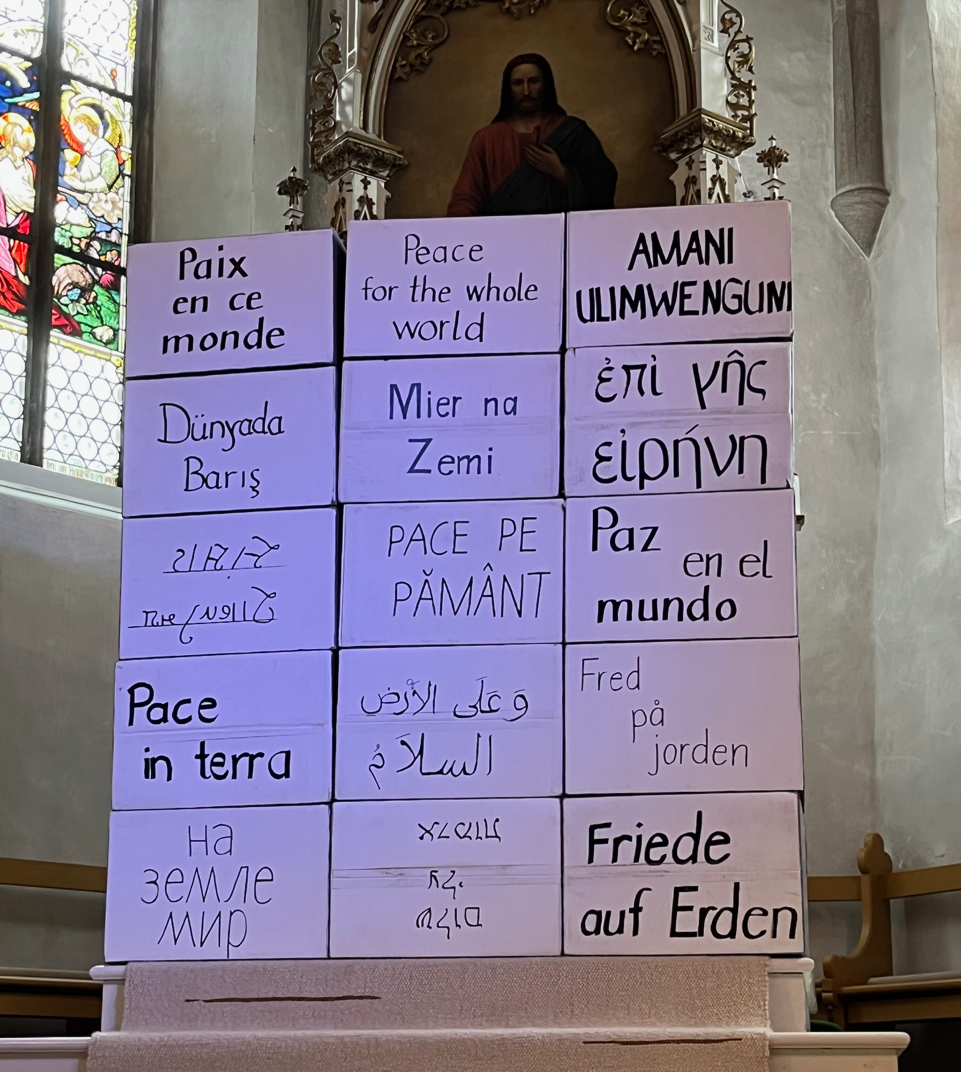 Paix
en ce
monde
Peace
for the whole
world
AMANI
ULIMWENGUNI
Dünyada
Barış
Mier na
Zemi
ἐπὶ γῆς
εἰρήνη
PACE PE
PĂMÂNT
Paz
en el
mundo
Pace
in terra
وَ عَلَى الأرْض
السلاَمُ
Fred
på
jorden
на
земле
мир
Friede
auf Erden